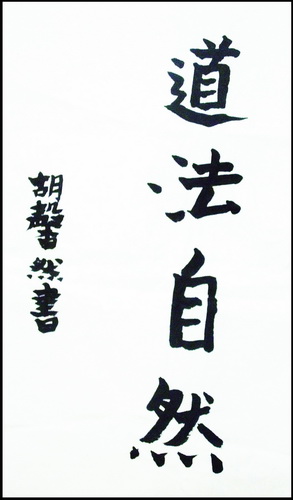 道法自然
胡馨然書